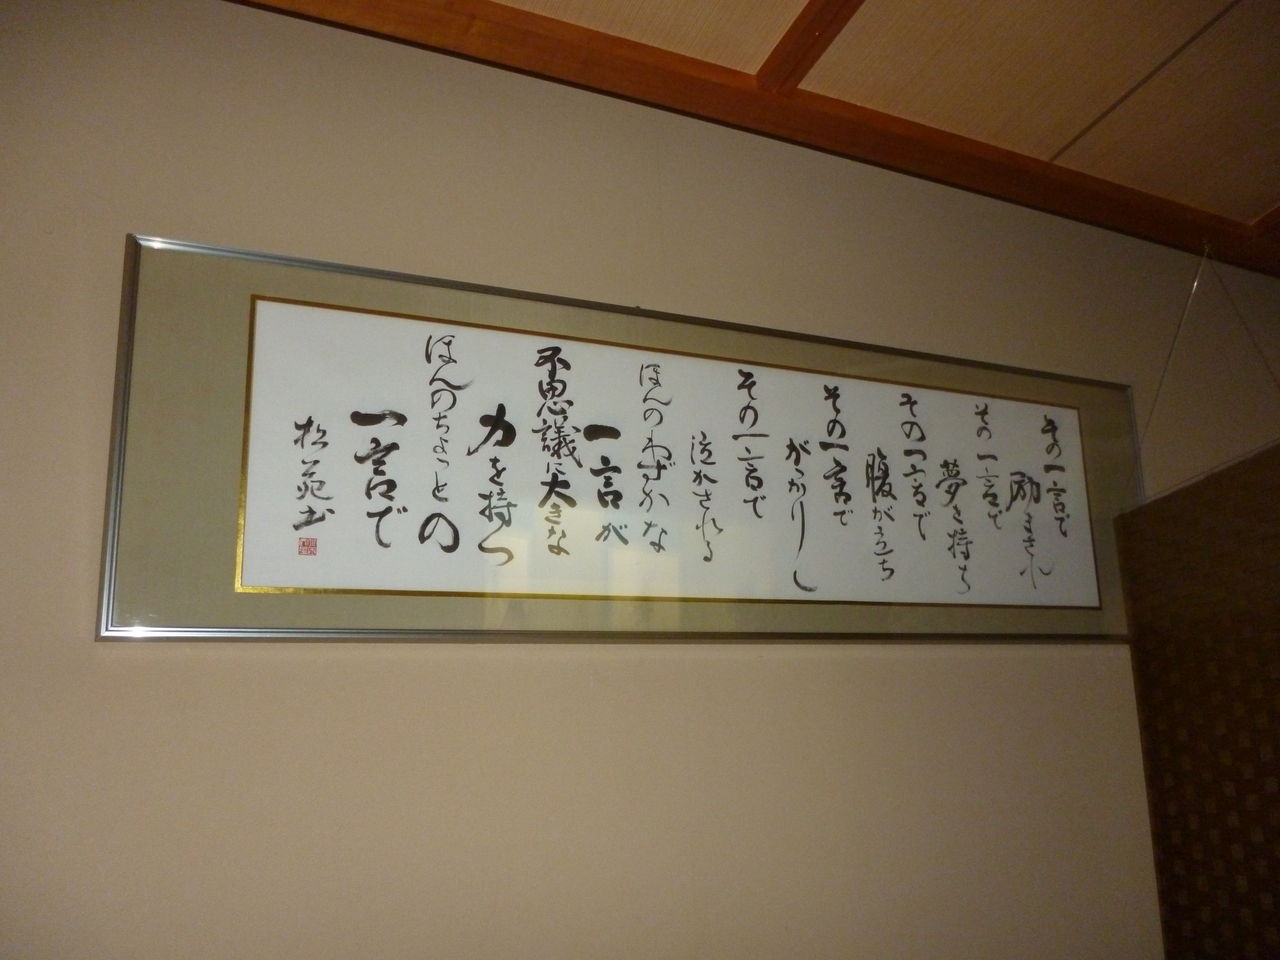 その一言で
励まされ
その一言で
夢を持ち
その一言で
腹が立ち
その一言で
がっかりし
その一言で
泣かされる
ほんのわずかな
一言が
不思議に大きな
力を持つ
ほんのちょっとの
一言で
松苑書